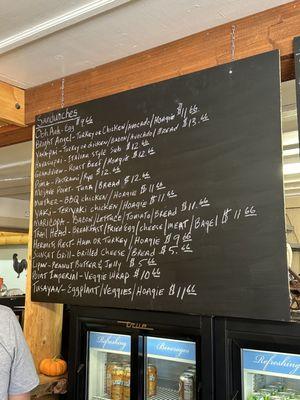 Sandwiches
Ooh Aah - Egg $9.66
Bright Angel - Turkey or Chicken/Avocado/Hoagie $11.66
Yavapai - Turkey or chicken/Bacon/Avocado/Bread $13.66
Havasupai - Italian Style Sub $12.66
Grandview - Roast Beef/Hoagie $12.66
Pima - Pastrami/Rye $12.66
Mojave Point - Tuna/Bread $12.66
Mather - BBQ chicken/Hoagie $11.66
Yaki - Teriyaki chicken/Hoagie $11.66
Maricopa - Bacon/Lettuce/Tomato/Bread $11.66
Trail Head - Breakfast/Fried Egg/cheese/meat/Bagel $11.66
Hermits Rest Ham or Turkey/Hoagie $9.66
Sunset Grill - Grilled Cheese/Bread $5.66
Lipan - Peanut Butter & Jelly $5.66
Point Imperial - Veggie Wrap $10.66
Tusayan - Eggplant/Veggies/Hoagie $11.66
Refreshing
Beverages
Refreshing